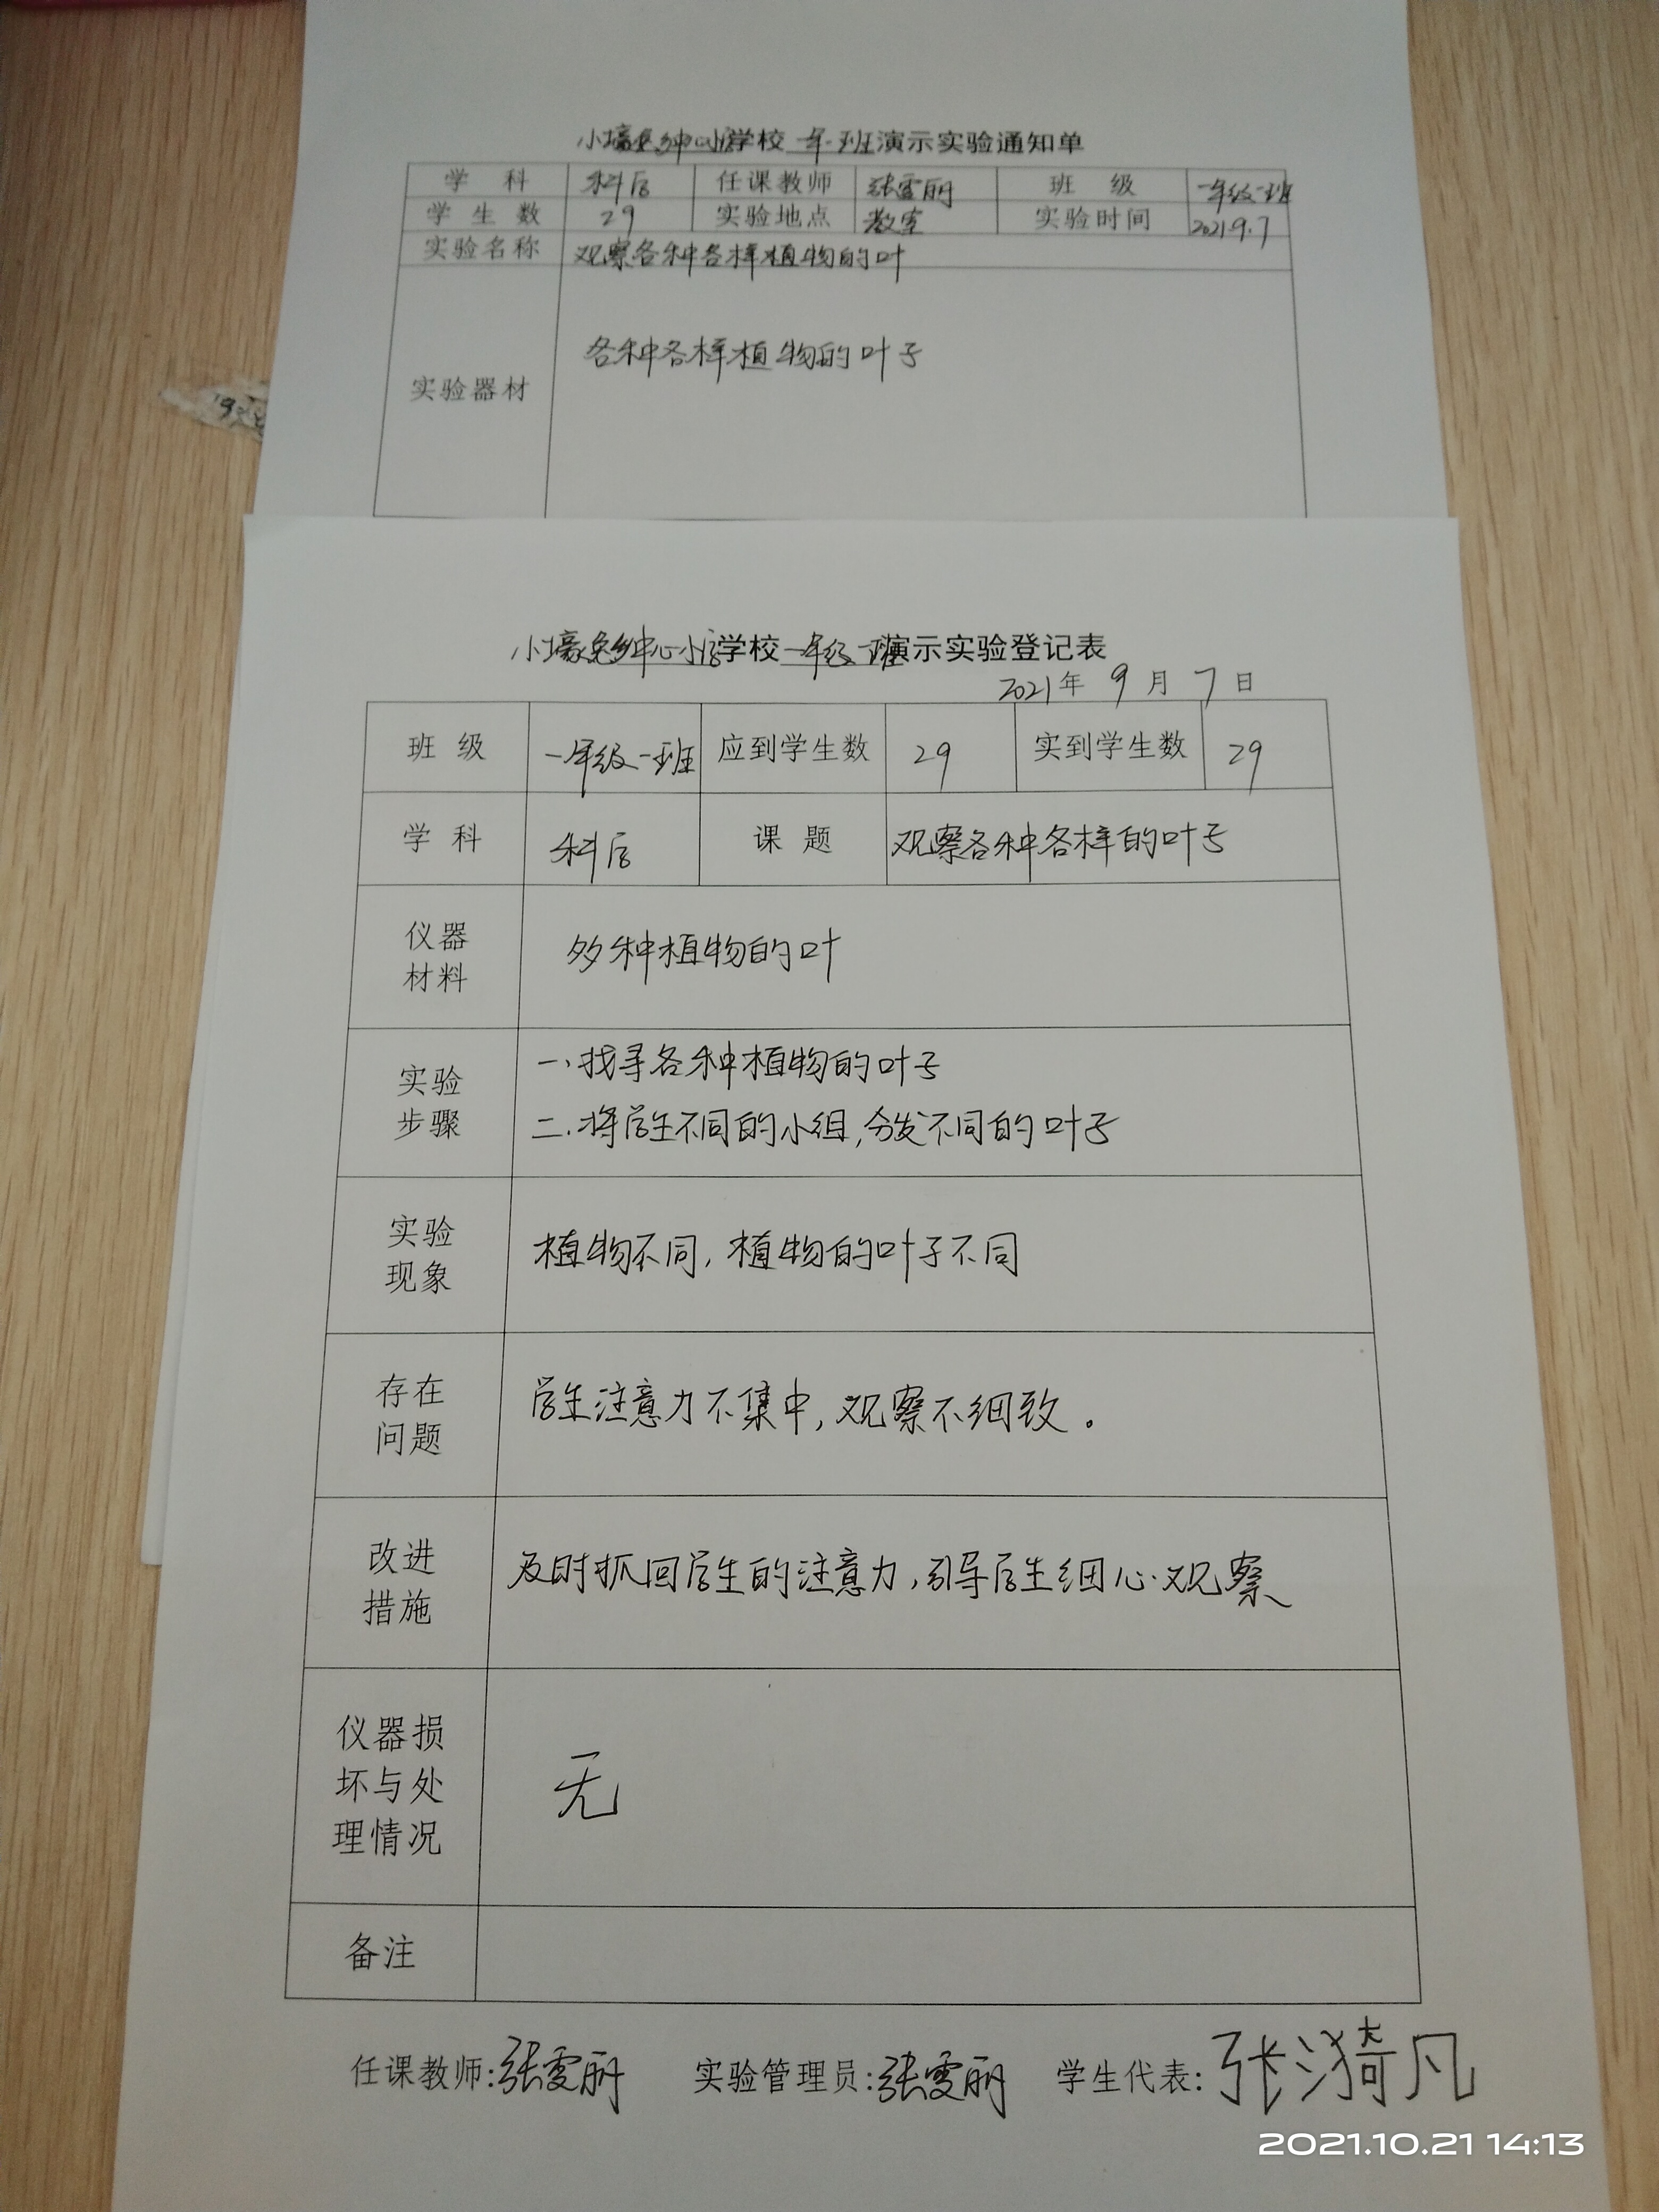 小壕兔乡中心小学学校 一年一班演示实验通知单
学 科 科学 任课教师 张雯丽 班 级 一年级一班
学生数 29 实验地点 教室 实验时间 2021.9.7
实验名称 观察各种各样植物的叶
实验器材 各种各样植物的叶子
小壕兔乡中心小学学校一年级一班演示实验登记表
2021年 9 月 7 日
班 级 一年级一班 应到学生数 29 实到学生数 29
学 科 科学 课 题 观察各种各样的叶子
仪器
材料
多种植物的叶
实验
步骤
一、找寻各种植物的叶子
二、将学生不同的小组,分发不同的叶子
实验
现象
植物不同,植物的叶子不同
存在
问题
学生注意力不集中,观察不细致。
改进
措施
及时抓回学生的注意力,引导学生细心观察
仪器损
坏与处
理情况
无
备注
任课教师:张雯丽 实验管理员:张雯丽 学生代表:张漪凡
2021.10.21 14:13